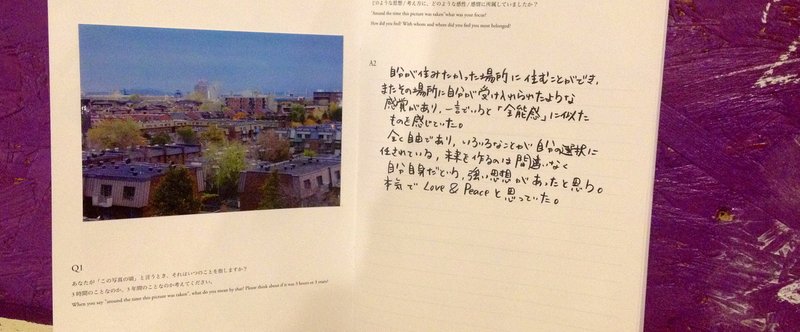 Q1
あなたが「この写真の頃」と言うとき、それはいつのことを指しますか？
3時間のことなのか、3年間のことなのか考えてください。
When you say "around the time this picture was taken", what do you mean by that? Please think about if it was 3 hours or 3 years?
どのような思想／考え方に、どのような感性／感情に所属していましたか？
"Around the time this picture was taken" what was your focus?
How did you feel? With whom and where did you feel you most belonged?
A2
自分が住みたかった場所に住むことができ、
またその場所に自分が受け入れられたような
感覚があり、一言でいうと「全能感」に似た
ものを感じていた。
全く自由であり、いろいろなことが自分の選択に
任されている、未来を作るのは間違いなく
自分自身だという、強い思想があったと思う。
本気で Love & Peace と思っていた。